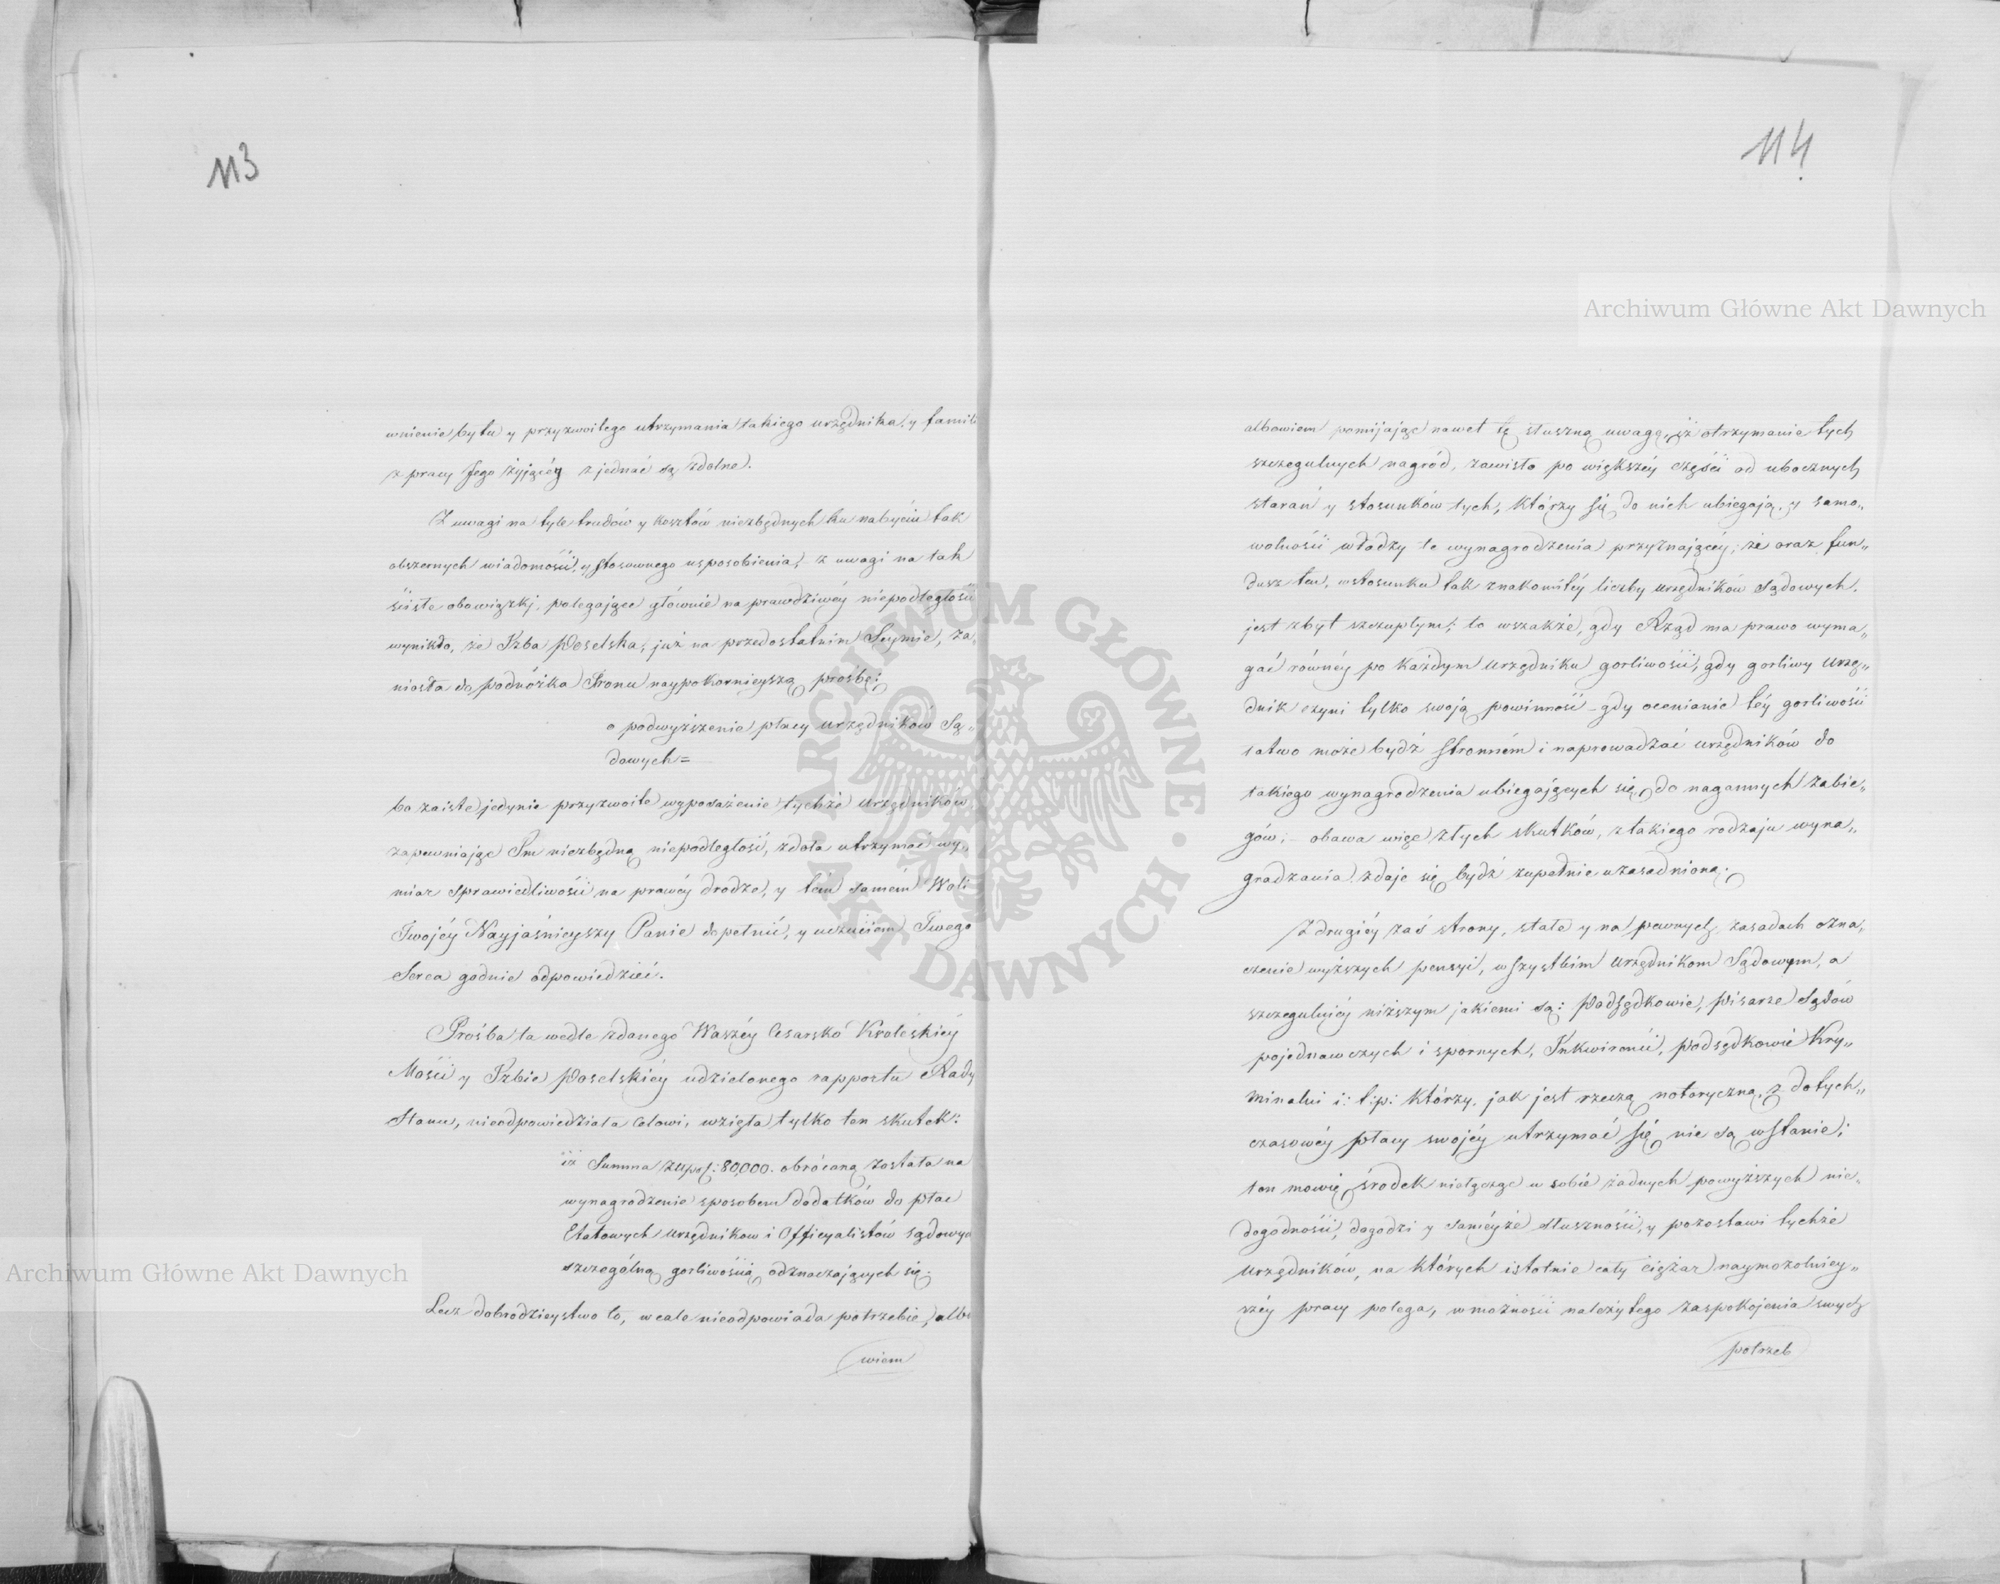 113
wnienie bytu y przyzwoitego utrzymania takiego urzędnika, y famili
z pracy Jego żyjącéy zjednać są zdolne.
Z uwagi na tyle trudów y kosztów niezbędnych ku nabyciu tak
obszernych wiadomości, y stosownego usposobienia, z uwagi na tak
ścisłe obowiązki, polegające głównie na prawdziwéy niepodległości
wynikło, że Izba Poselska, już na przedostatnim Seymie, za„
niosła do podnóżka Tronu naypokornieyszą prośbę:
o podwyższenie płacy urzędników Są„
dowych =
bo zaiste jedynie przyzwoite wyposażenie tychże urzędników
zapewniając Im niezbędną niepodległość, zdoła utrzymać wy„
miar sprawiedliwości na prawéy drodze, y tém samém Woli
Twojéy Nayjaśnieyszy Panie dopełnić, y uczuciom Twego
Serca godnie odpowiedzieć.
Prośba ta wedle zdanego Waszéy Cesarsko Króleskiéy
Mości y Izbie Poselskiéy udzielonego rapportu Rady
Stanu, nieodpowiedziała Celowi, wzięła tylko ten skutek:
iż Summa złpol: 80,000. obróconą została na
wynagrodzenie sposobem dodatków do płac
Etatowych urzędnikow i Officyalistów sądowych
szczególną gorliwością odznaczających się.
Lecz dobrodzieystwo to, wcale nieodpowiada potrzebie, albo
wiem
114
albowiem pomijając nawet tę słuszną uwagę, iż otrzymanie tych
szczegulnych nagród, zawisło po większéy części od ubocznych
starań y stosunków tych, którzy się do nich ubiegają, y samo„
wolności władzy te wynagrodzenia przyznającéy; że oraz fun„
dusz ten, w stosunku tak znakomitéy liczby urzędników Sądowych,
jest zbyt szczupłym; to wszakże, gdy Rząd ma prawo wyma„
gać równéy po każdym urzędniku gorliwości, gdy gorliwy urzę„
dnik czyni tylko swoją powinność – gdy ocenianie téy gorliwości
łatwo może bydź stronném i naprowadzać urzędników do
takiego wynagrodzenia ubiegających się, do nagannych zabie„
gów; – obawa więc złych skutków, z takiego rodzaju wyna„
gradzania zdaje się bydź zupełnie uzasadnioną.
Z drugiéy zaś strony, stałe y na pewnych zasadach ozna„
czenie wyższych pensyi, wszystkim urzędnikom Sądowym, a
szczegulniéy niższym jakiemi są: Podsędkowie, Pisarze Sądów
pojednawczych i spornych, Inkwirenci, podsędkowie Kry„
minalni i: t: p: którzy, jak jest rzeczą notoryczną, z dotych„
czasowéy płacy swojéy utrzymać się nie są w stanie;
ten mowię środek niełącząc w sobie żadnych powyższych nie„
dogodności, dogodzi y saméyże słuszności, y pozostawi tychże
urzędników, na których istotnie cały ciężar naymozolniey„
széy pracy polega, w możności należytego zaspokojenia swych
potrzeb
Archiwum Główne Akt Dawnych
Archiwum Główne Akt Dawnych
ARCHIWUM GŁÓWNE AKT DAWNYCH